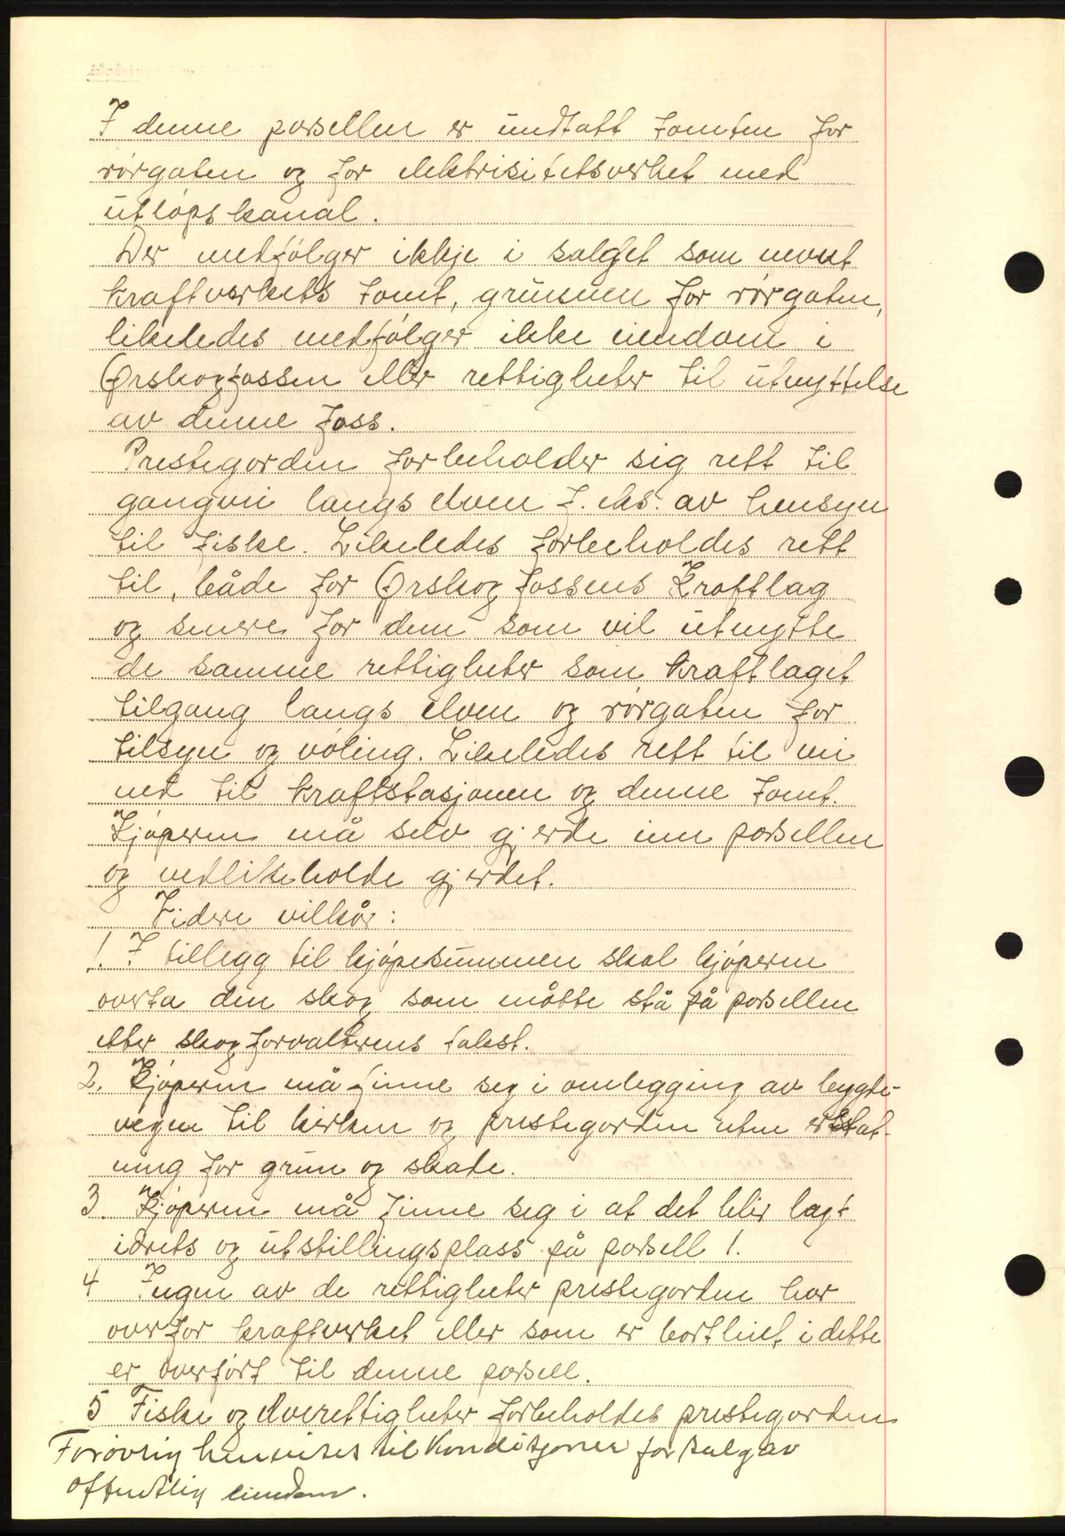 I denne parsellen er undtatt tomten for
rørgaten og for elektrisitetsverket med
utløpskanal.
Der medfølger ikkje i salget som nevnt
kraftverkets tomt, grunnen for rørgaten,
likeledes medfølger ikke eiendom i
Ørskogfossen eller rettigheter til utnyttelse
av denne foss.
Prestegorden forbeholder sig rett til
gangvei langs elven f. eks. av hensyn
til fiske. Likeledes forbeholdes rett
til, både for Ørskogfossens Kraftlag
og senere for dem som vil utnytte
de samme rettigheter som kraftlaget
tilgang langs elven og rørgaten for
tilsyn og vøling. Likeledes rett til vei
ned til kraftstasjonen og denne tomt.
Kjøperen må selv gjerde inn parsellen
og vedlikeholde gjerdet.
Videre vilkår:
1. I tillegg til kjøpesummen skal kjøperen
overta den skog som måtte stå på parsellen
etter skogforvalterens takst.
2. Kjøperen må finne seg i omlegging av bygde-
vegen til kirken og prestegorden uten erstat-
ning for grunn og skade.
3. Kjøperen må finne seg i at det blir lagt
idrets og utstillingsplass på parsell 1.
4 Ingen av de rettigheter prestegorden har
overfor kraftverket eller som er bortleiet i dette
er overført til denne parsell.
5 Fiske og elverettigheter forbeholdes prestegorden
Forøvrig henvises til Konditjoner for salg av
offentlig eiendom.